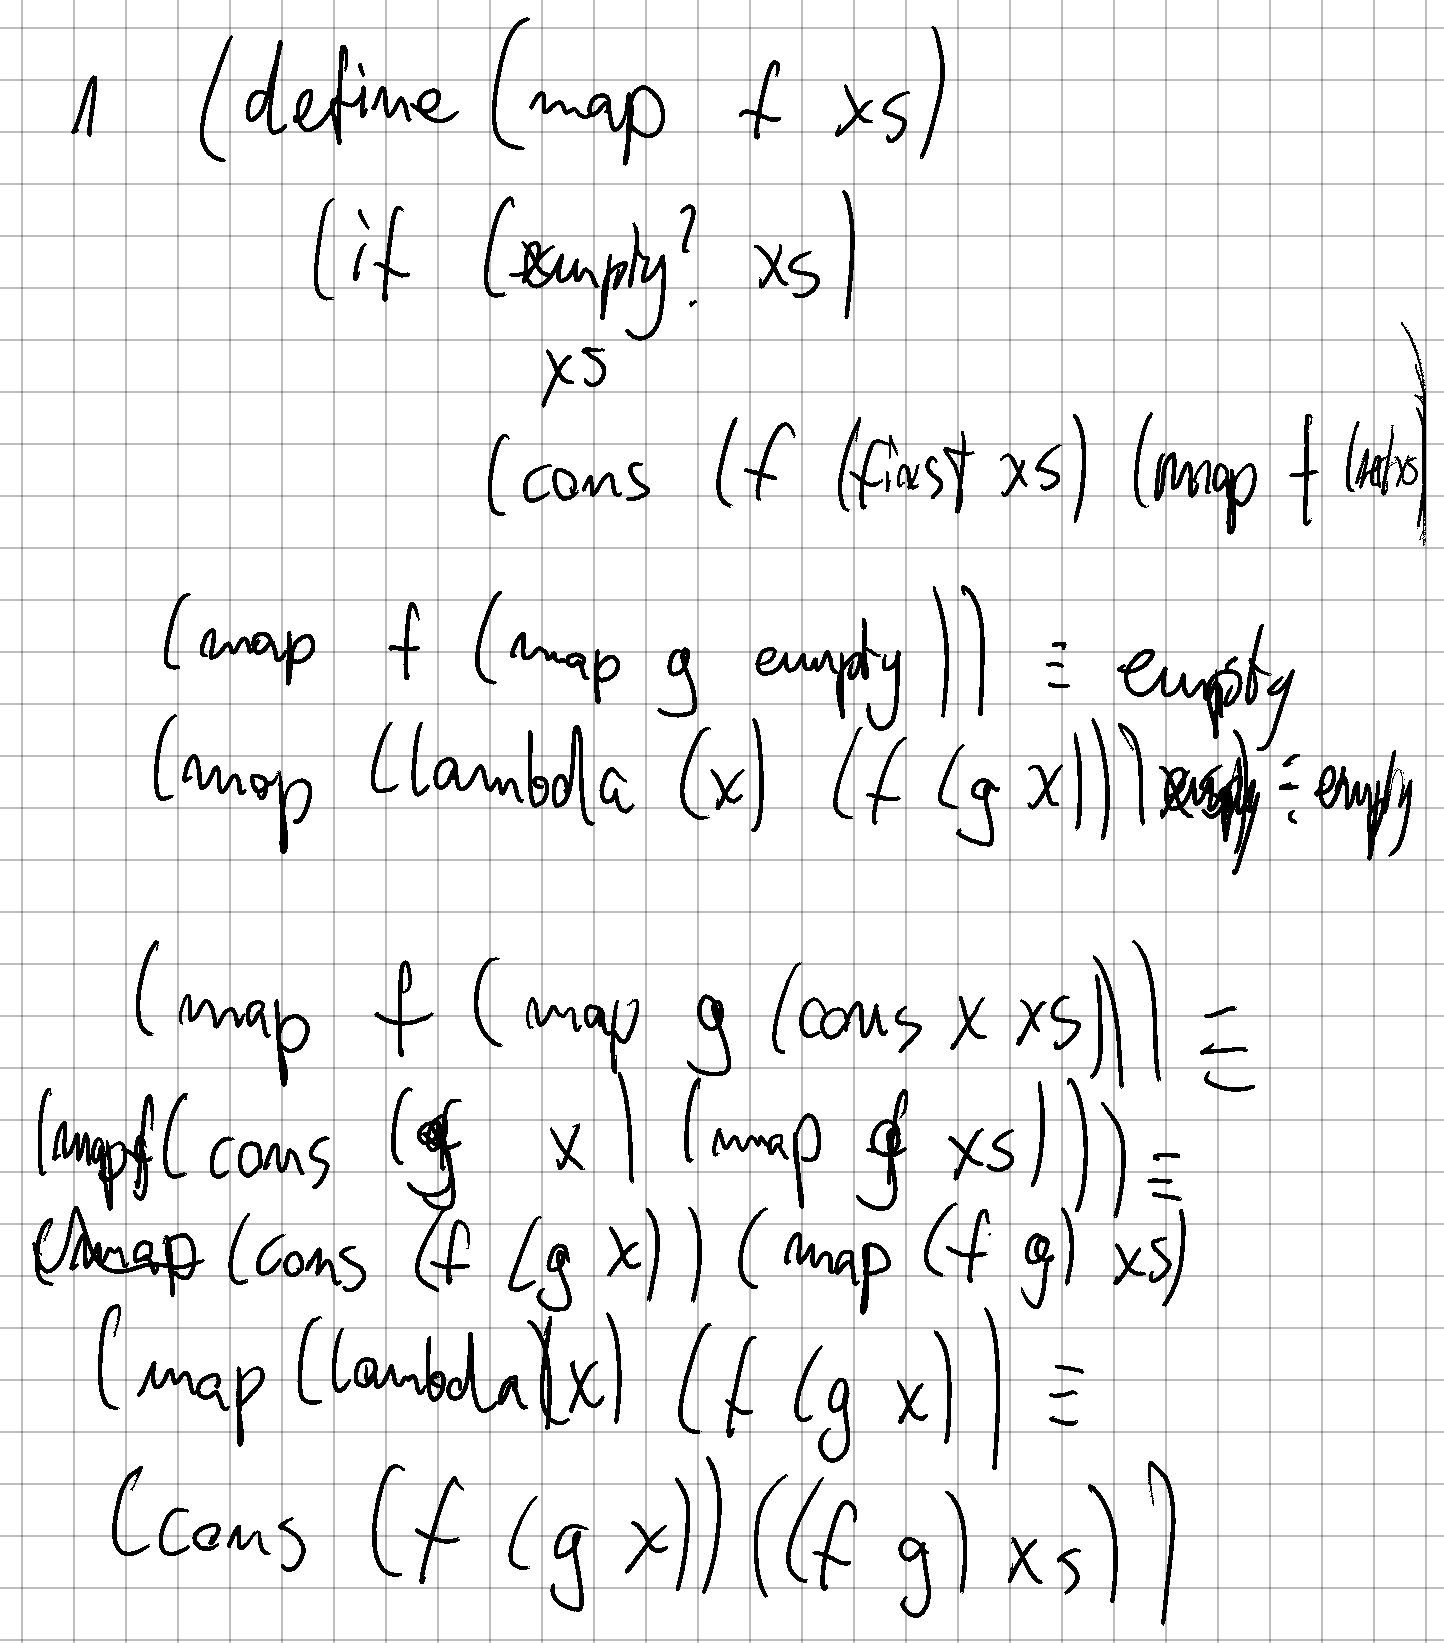 1 (define (map f xs)
(if (empty? xs)
xs
(cons (f (first xs) (map f (rest xs)
(map f (map g empty)) ≡ empty
(map (lambda (x) (f (g x))) empty) ≡ empty
(map f (map g (cons x xs))) ≡
(map f (cons (g x) (map g xs))) ≡
(cons (f (g x)) (map (f g) xs)
(map (lambda (x) (f (g x)) ≡
(cons (f (g x)) ((f g) xs))